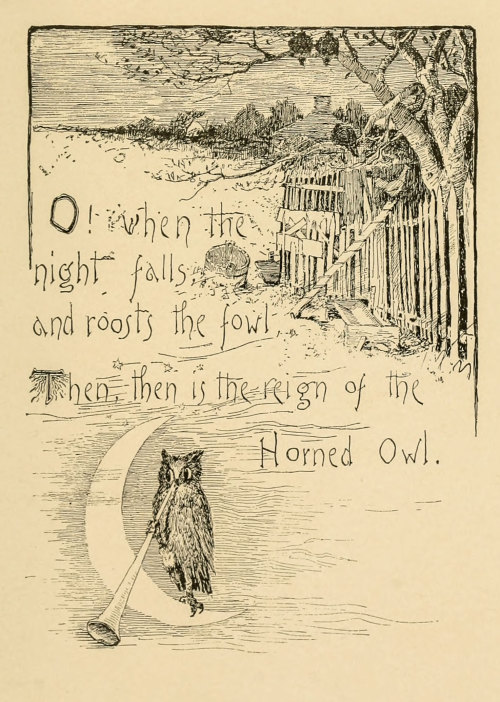 O! when the
night falls,
and roosts the fowl,
Then, then is the reign of the
Horned Owl.